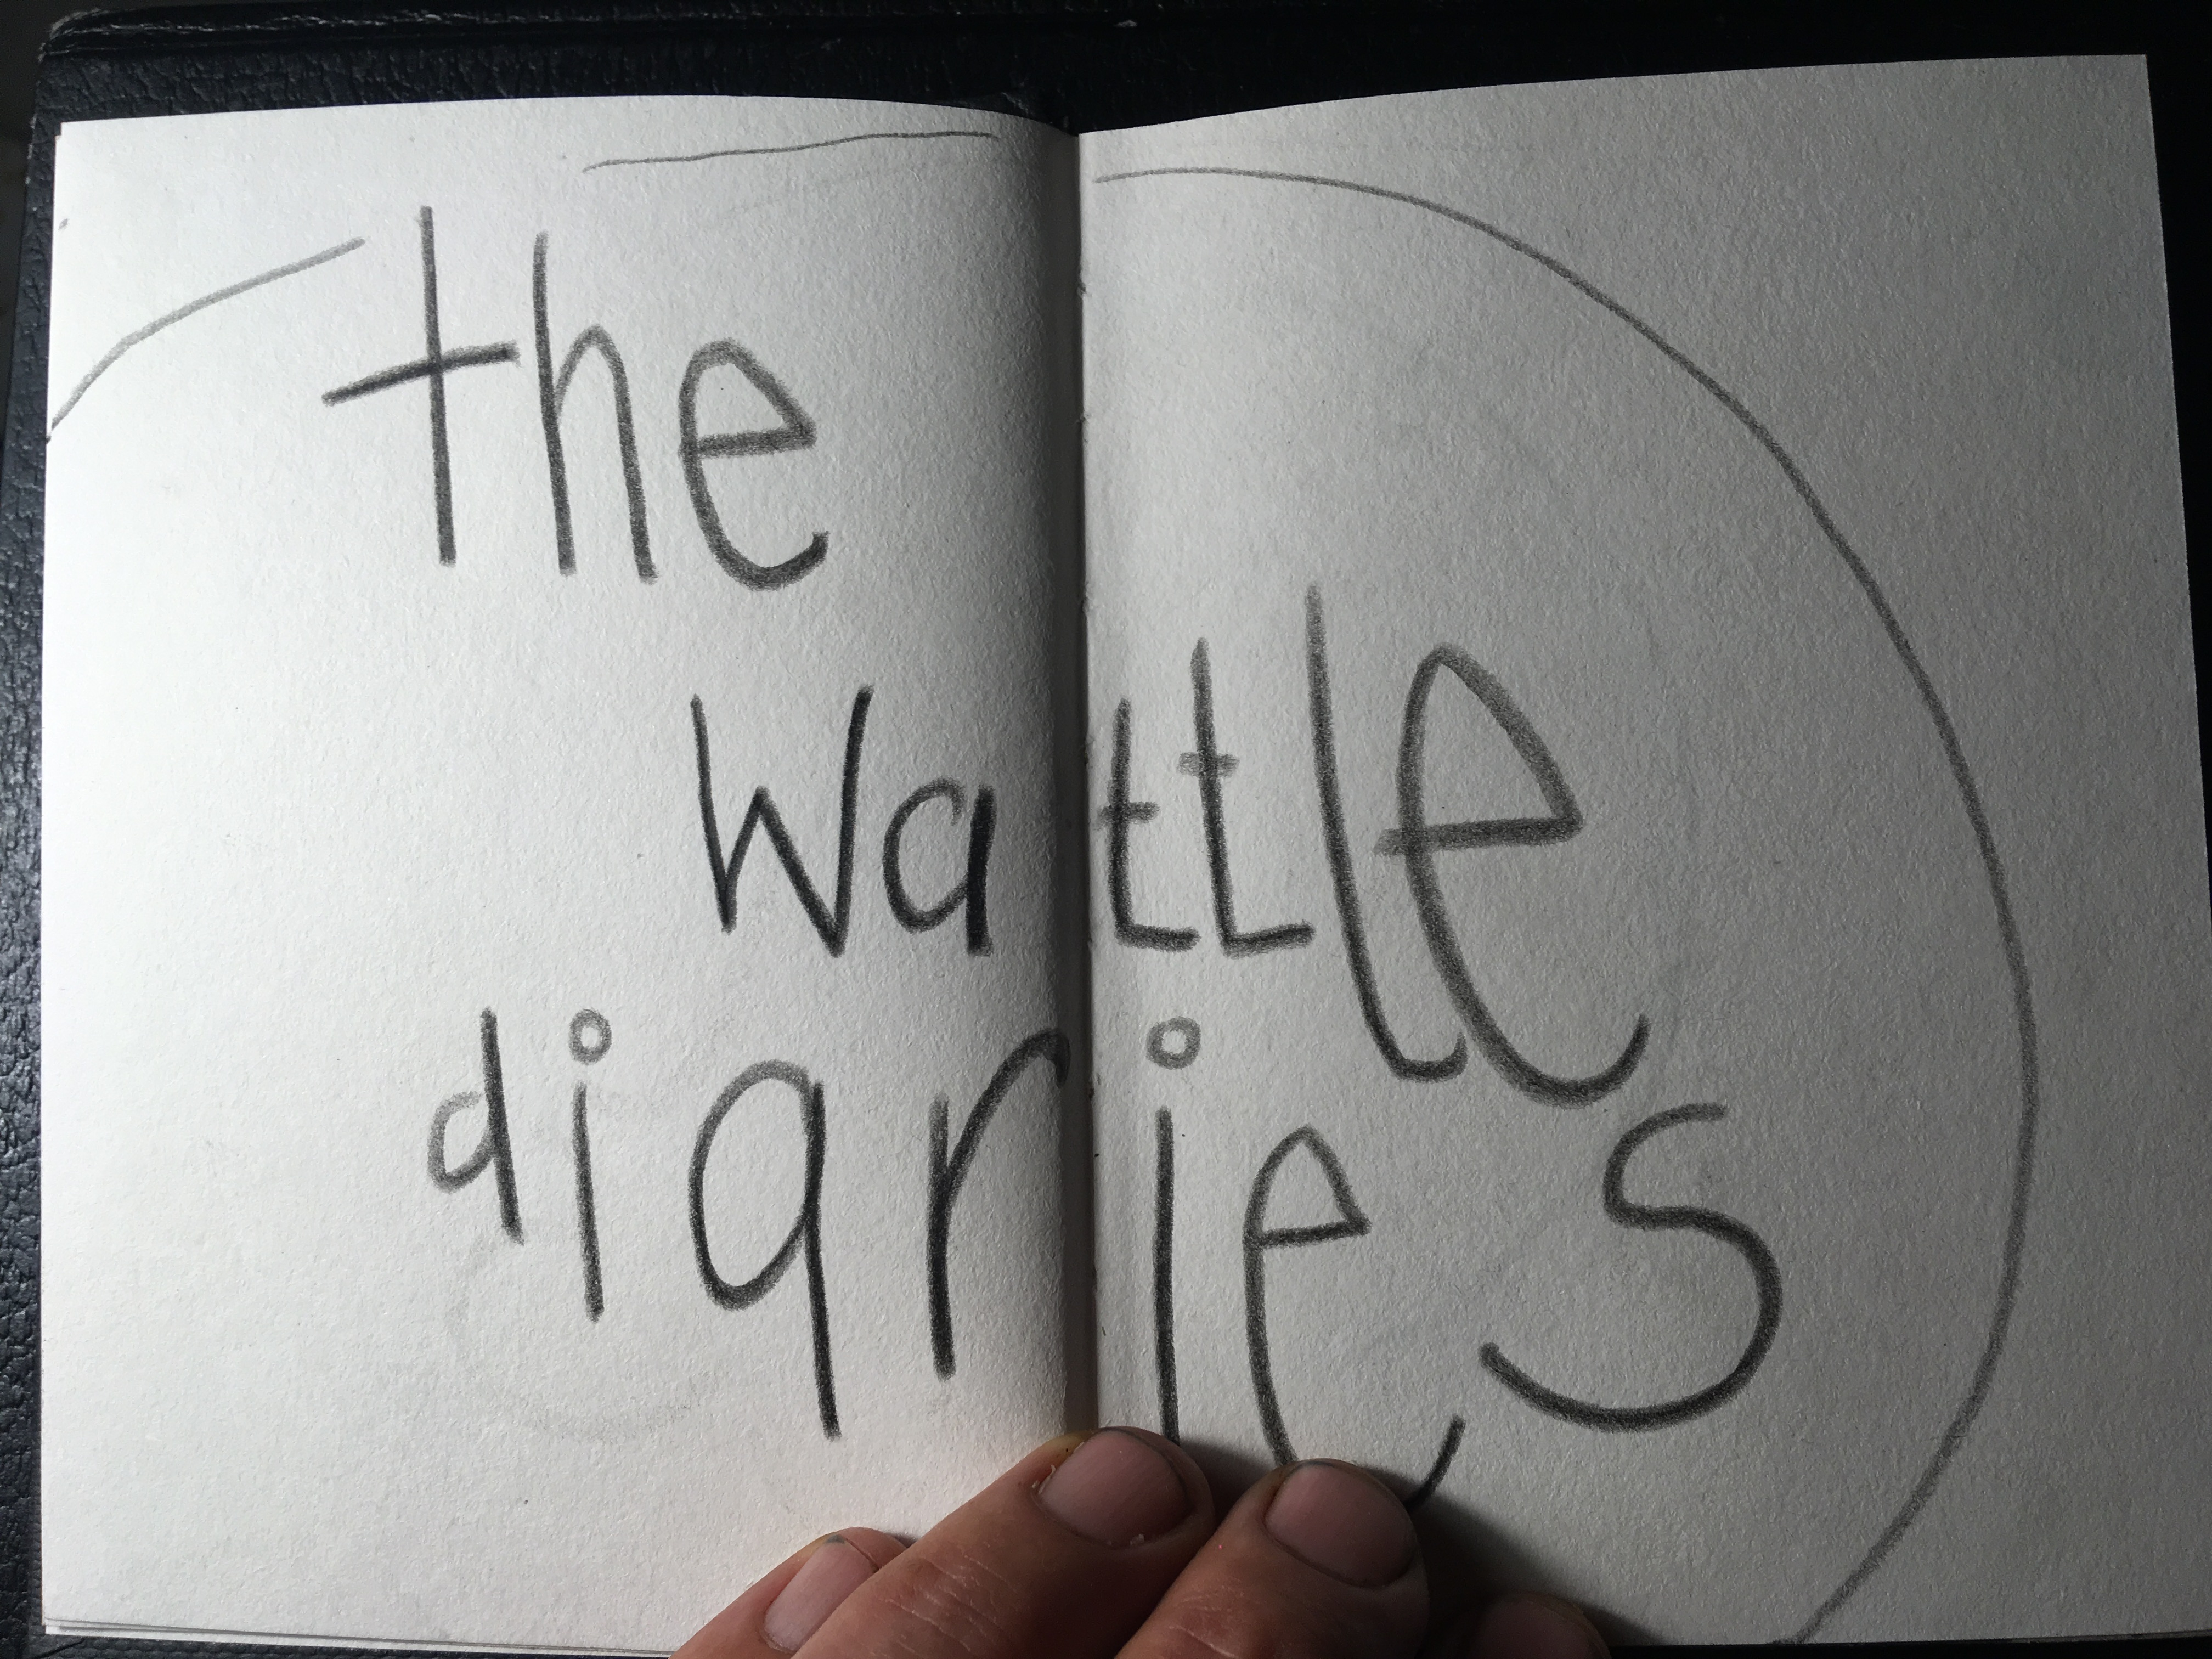 the
wattle
diaries